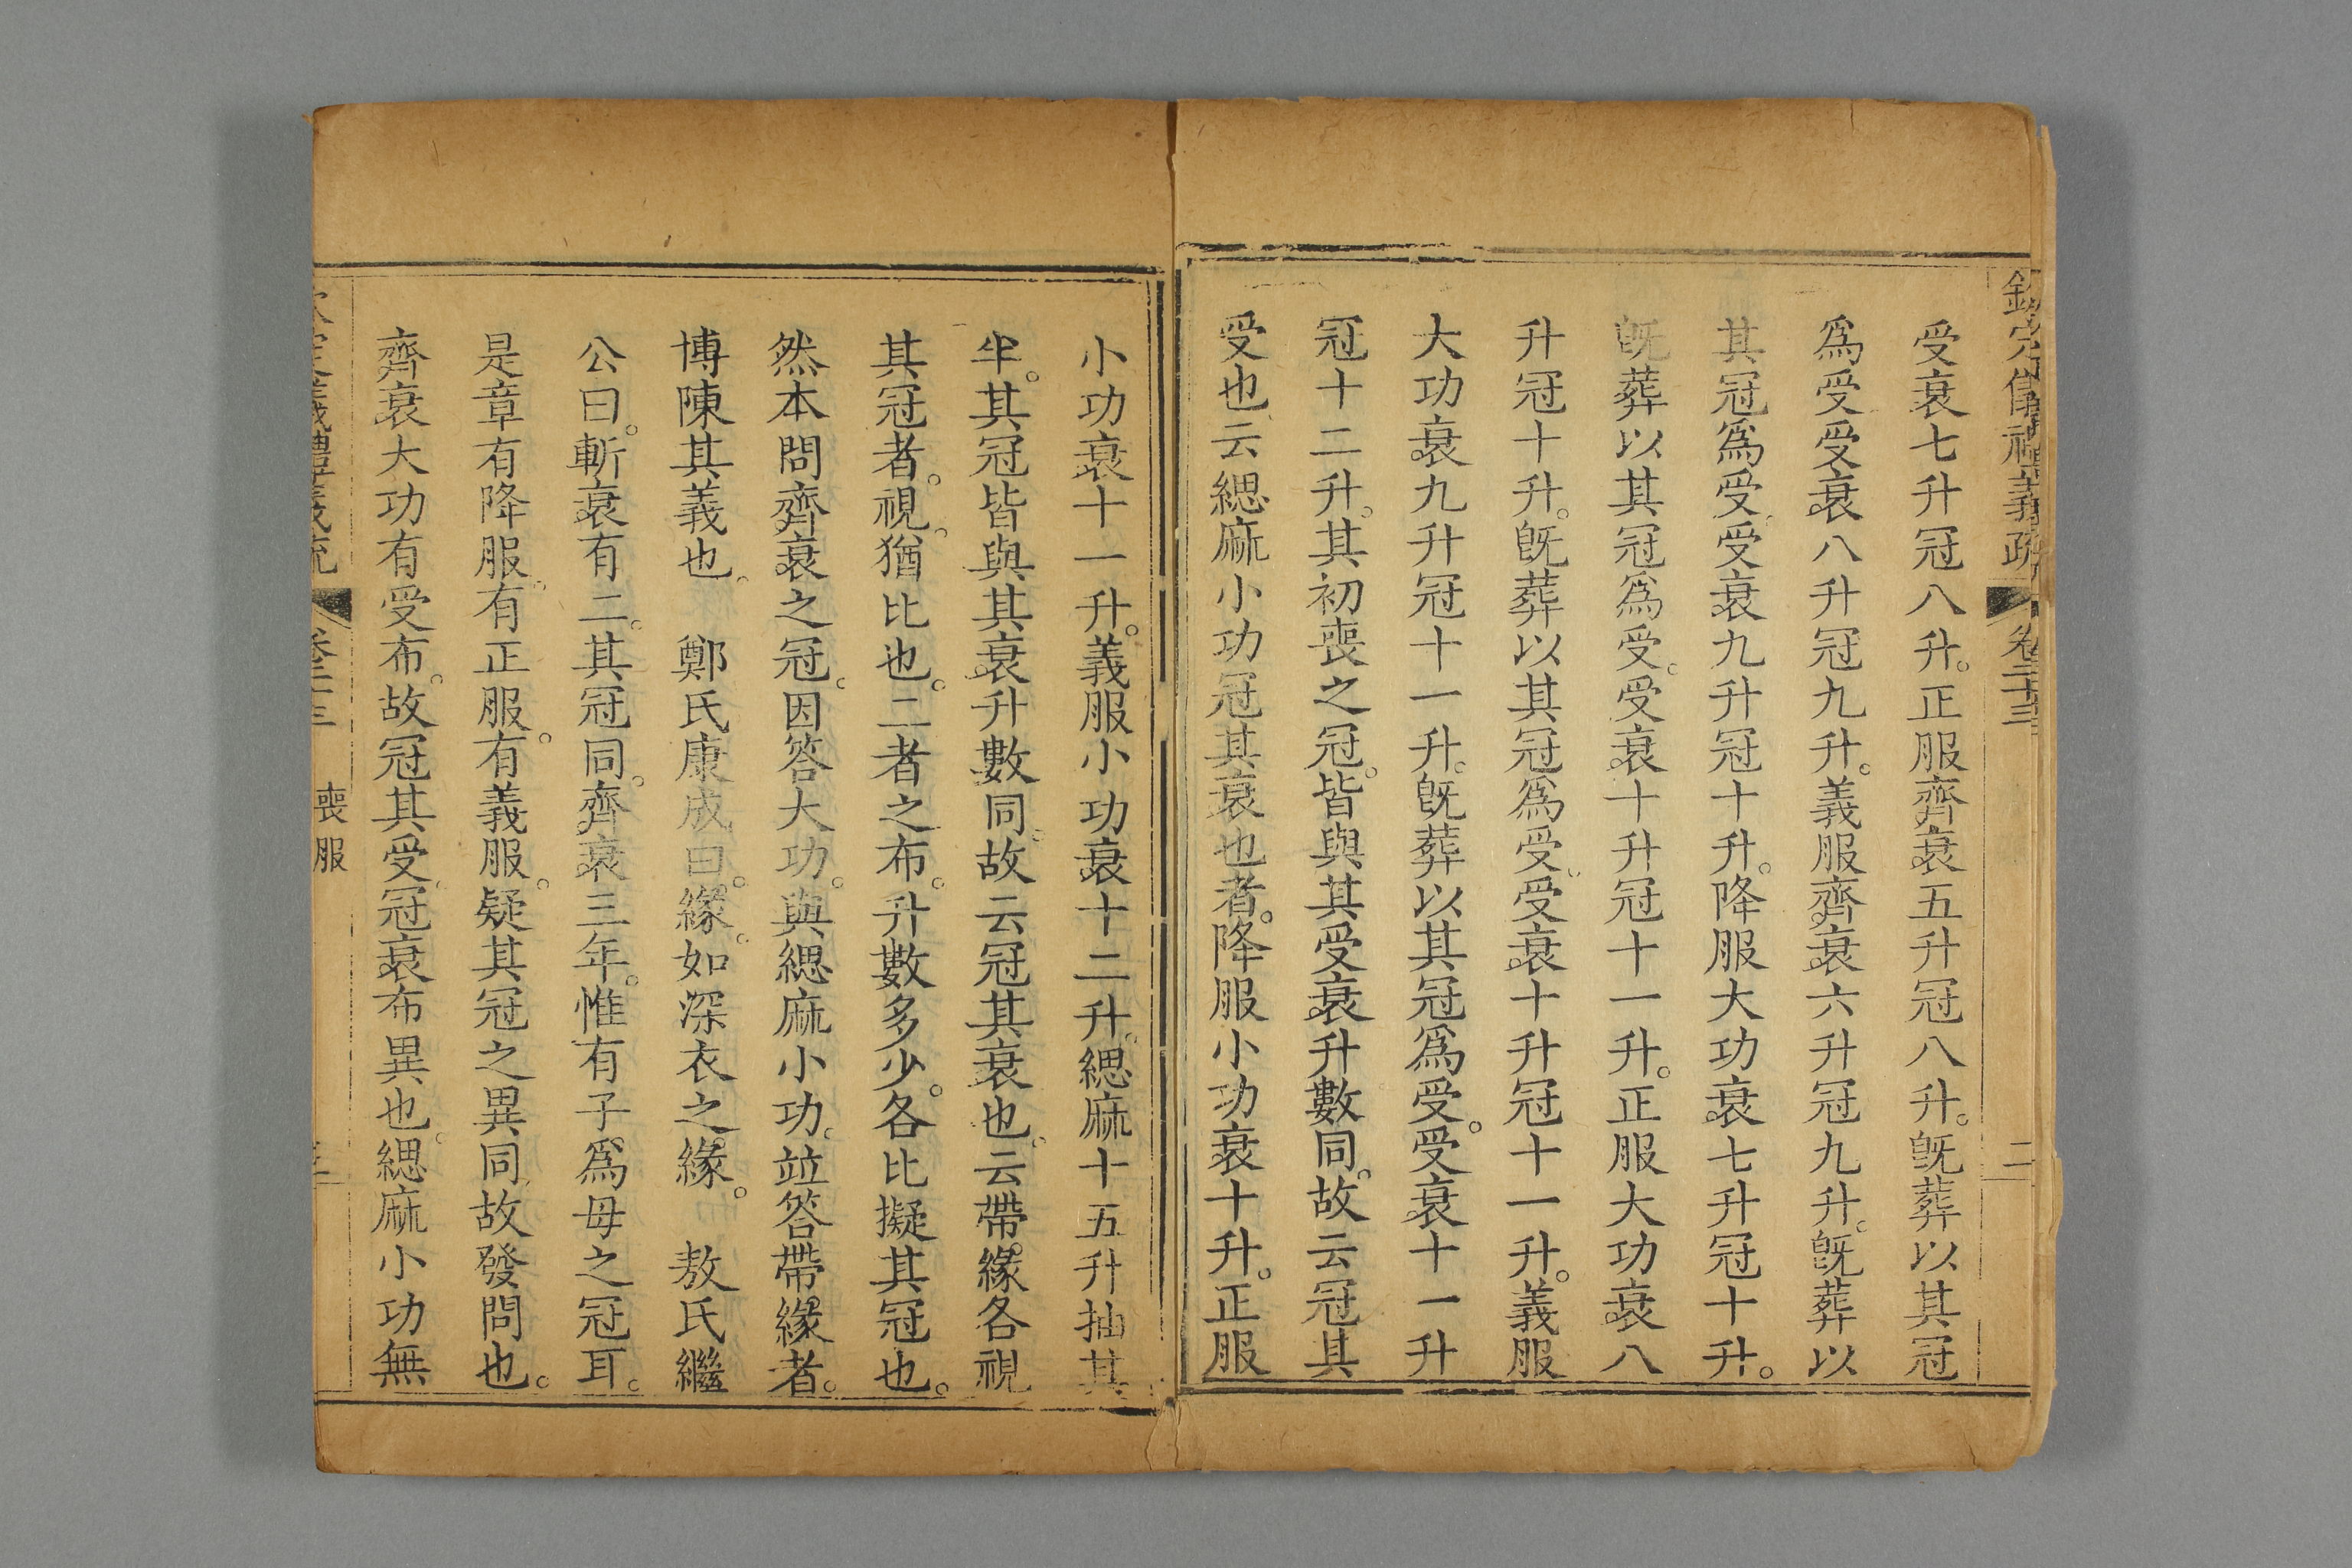 欽定儀禮義疏 卷二十三 二
受衰七升冠八升。正服齊衰五升冠八升。旣葬以其冠
爲受受衰八升冠九升。義服齊衰六升冠九升。旣葬以
其冠爲受。受衰九升冠十升。降服大功衰七升冠十升。
旣葬以其冠爲受。受衰十升冠十一升。正服大功衰八
升冠十升。旣葬以其冠爲受。受衰十升冠十一升。義服
大功衰九升冠十一升。旣葬以其冠爲受。受衰十一升
冠十二升。其初喪之冠。皆與其受衰升數同。故云冠其
受也云緦麻小功冠其衰也者。降服小功衰十升。正服
小功衰十一升。義服小功衰十二升。緦麻十五升抽其
半。其冠皆與其衰升數同。故云冠其衰也。云帶。緣各視
其冠者。視。猶比也。二者之布。升數多少。各比擬其冠也。
然本問齊衰之冠。因答大功。與緦麻小功。竝答帶。緣者。
博陳其義也。 鄭氏康成曰。緣。如深衣之緣。 敖氏繼
公曰。斬衰有二。其冠同。齊衰三年。惟有子爲母之冠耳。
是章有降服。有正服。有義服。疑其冠之異同。故發問也。
齊衰大功有受布。故冠其受。冠衰布異也。緦麻小功無
喪服